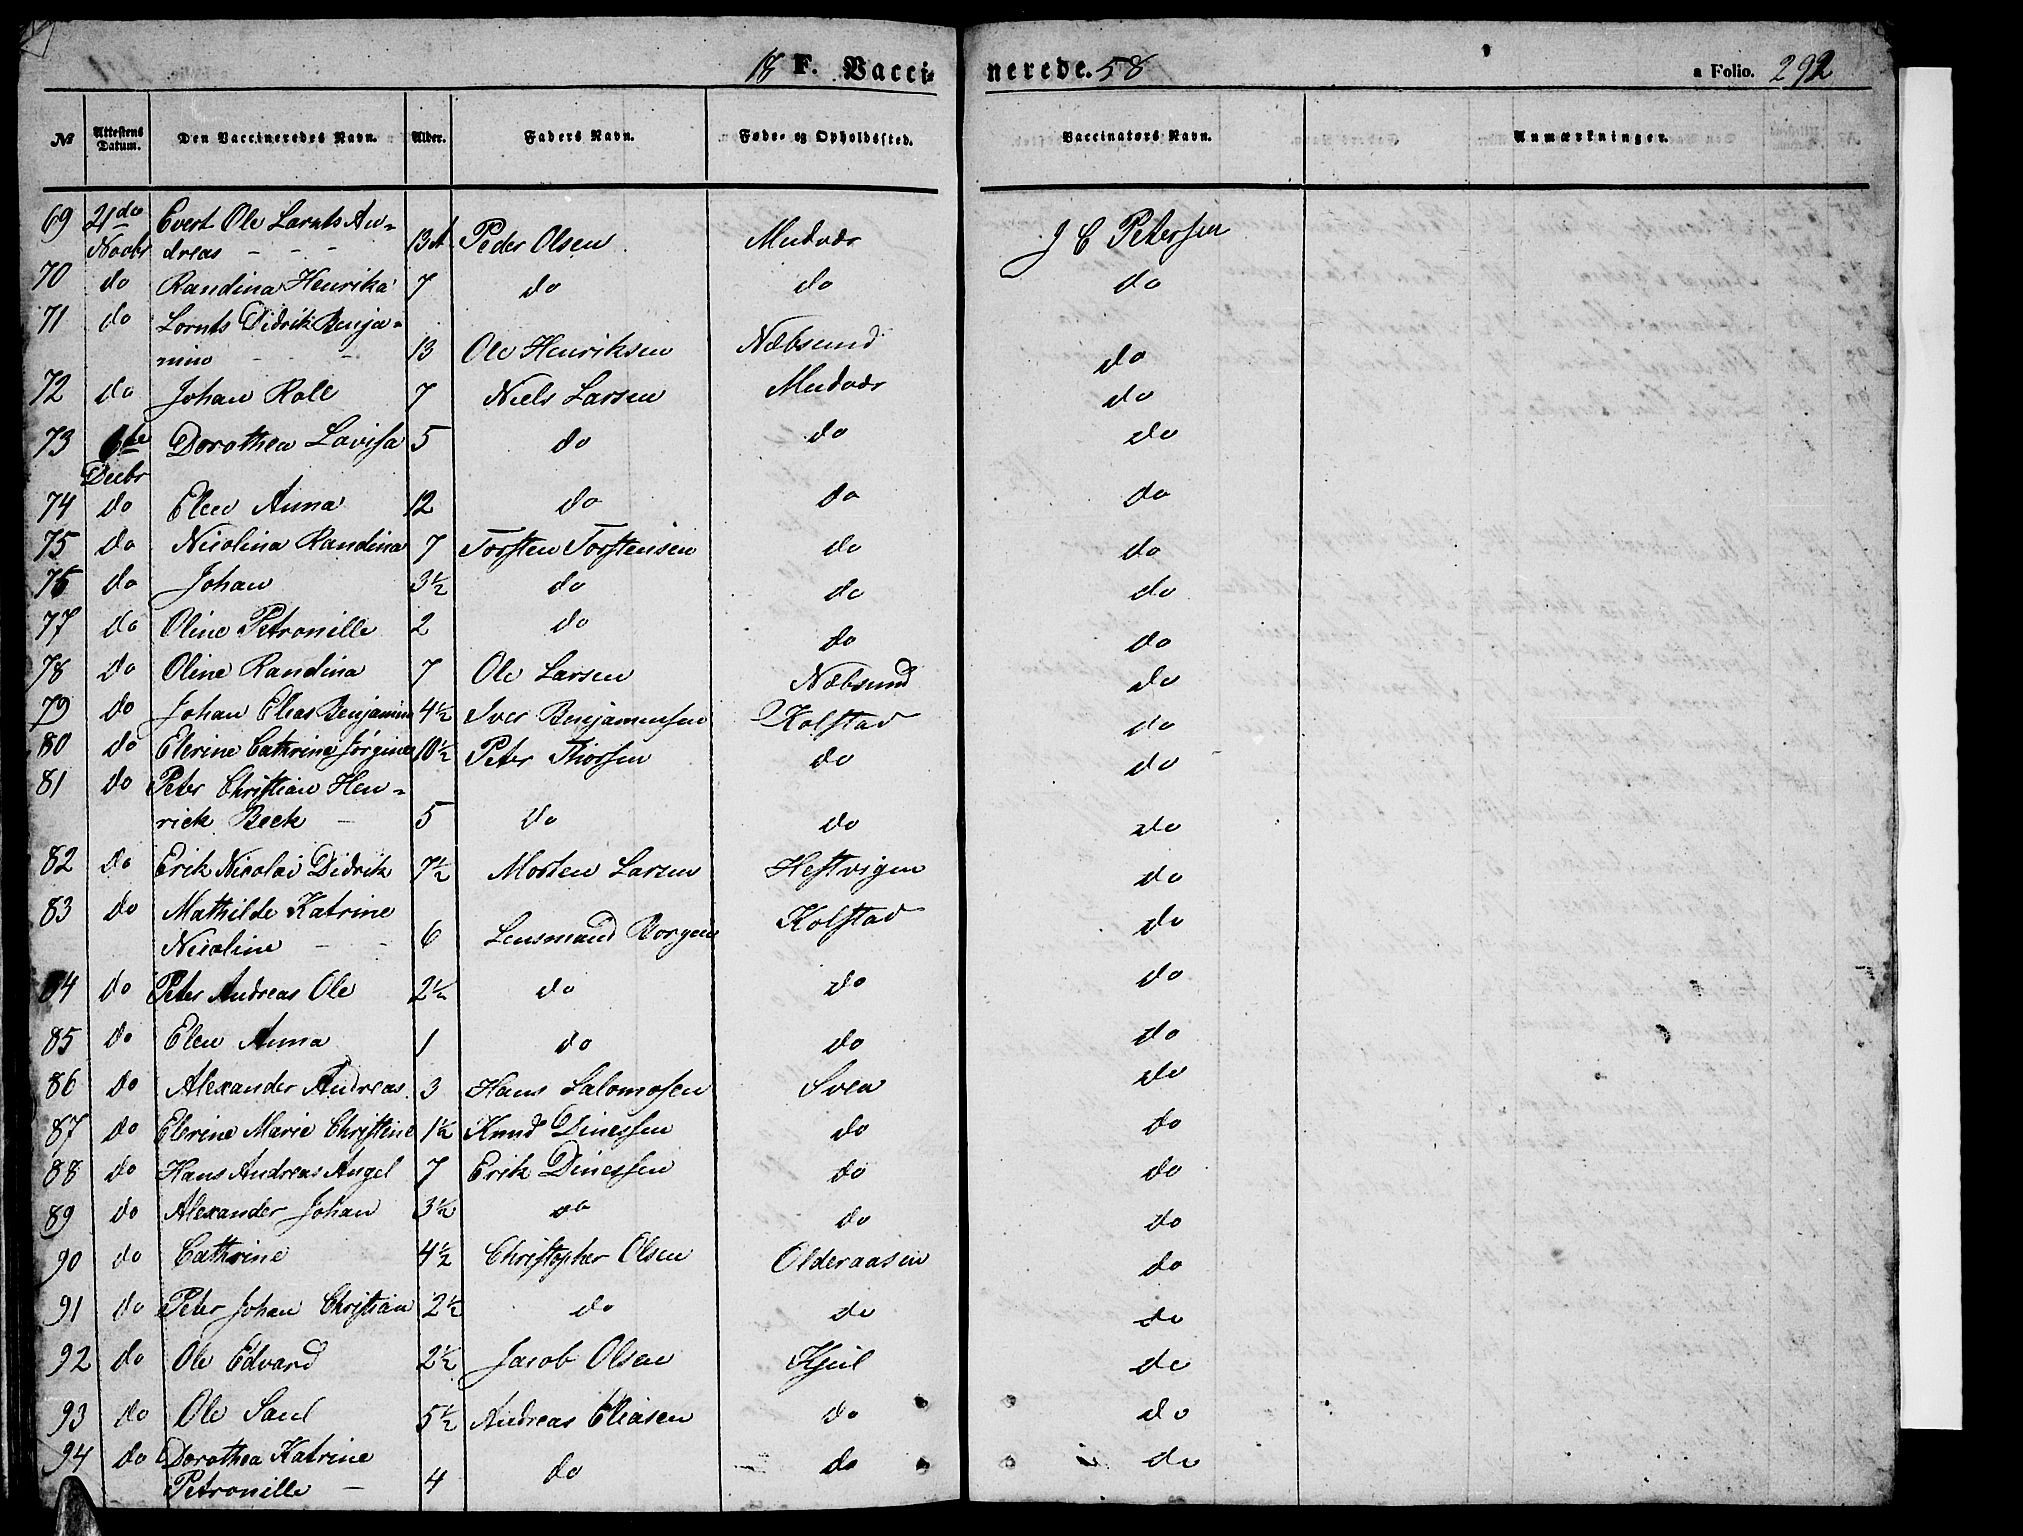 18 F. Vacci- nerede. 58 a Folio. 292
№ Attestens Datum. Den Vaccineredes Navn. Alder. Faders Navn. Føde- og Opholdssted. Vaccinators Navn. Anmærkninger.
69 21de Evert Ole Larnts An-
Novbr dreas - - - 13 Peder Olsen Mudvær J C Petersen
70 do Randina Henrika 7 do do do
71 do Lornts Didrik Benja-
min - - 13 Ole Henriksen Næbsund do
72 do Johan Roll 7 Niels Larsen Mudvær do
73 6te Dorothea Lovisa 5 do do do
Decbr
74 do Elen Anna 12 do do do
75 do Nicolina Randina 7 Torsten Torstensen do do
76 do Johan 3½ do do do
77 do Oline Petronille 2 do do do
78 do Oline Randina 7 Ole Larsen Næbsund do
79 do Johan Elias Benjamin 4½ Iver Benjamensen Kolstad do
80 do Elerine Cathrine Jørgine 10½ Peter Thorsen do do
81 do Peter Christian Hen-
rick Beck - 5 do do do
82 do Erik Nicolai Didrik 7½ Morten Larsen Hestvigen do
83 do Mathilde Katrine
Nicoline - - 6 Lensmand Borgen Kolstad do
84 do Peter Andreas Ole 2½ do do do
85 do Elen Anna 1 do do do
86 do Alexander Andreas 3 Hans Salomosen Svea do
87 do Elerine Marie Christine 1½ Knud Dinessen do do
88 do Hans Andreas Angel 7 Erik Dinessen do do
89 do Alexander Johan 3½ do do do
90 do Cathrine 4½ Christopher Olsen Olderaasen do
91 do Peter Johan Christian 2½ do do do
92 do Ole Edvard 2½ Jacob Olsen Kjul do
93 do Ole Saul 5½ Andreas Eliasen do do
94 do Dorothea Katrine
Petronille - 4 do do do